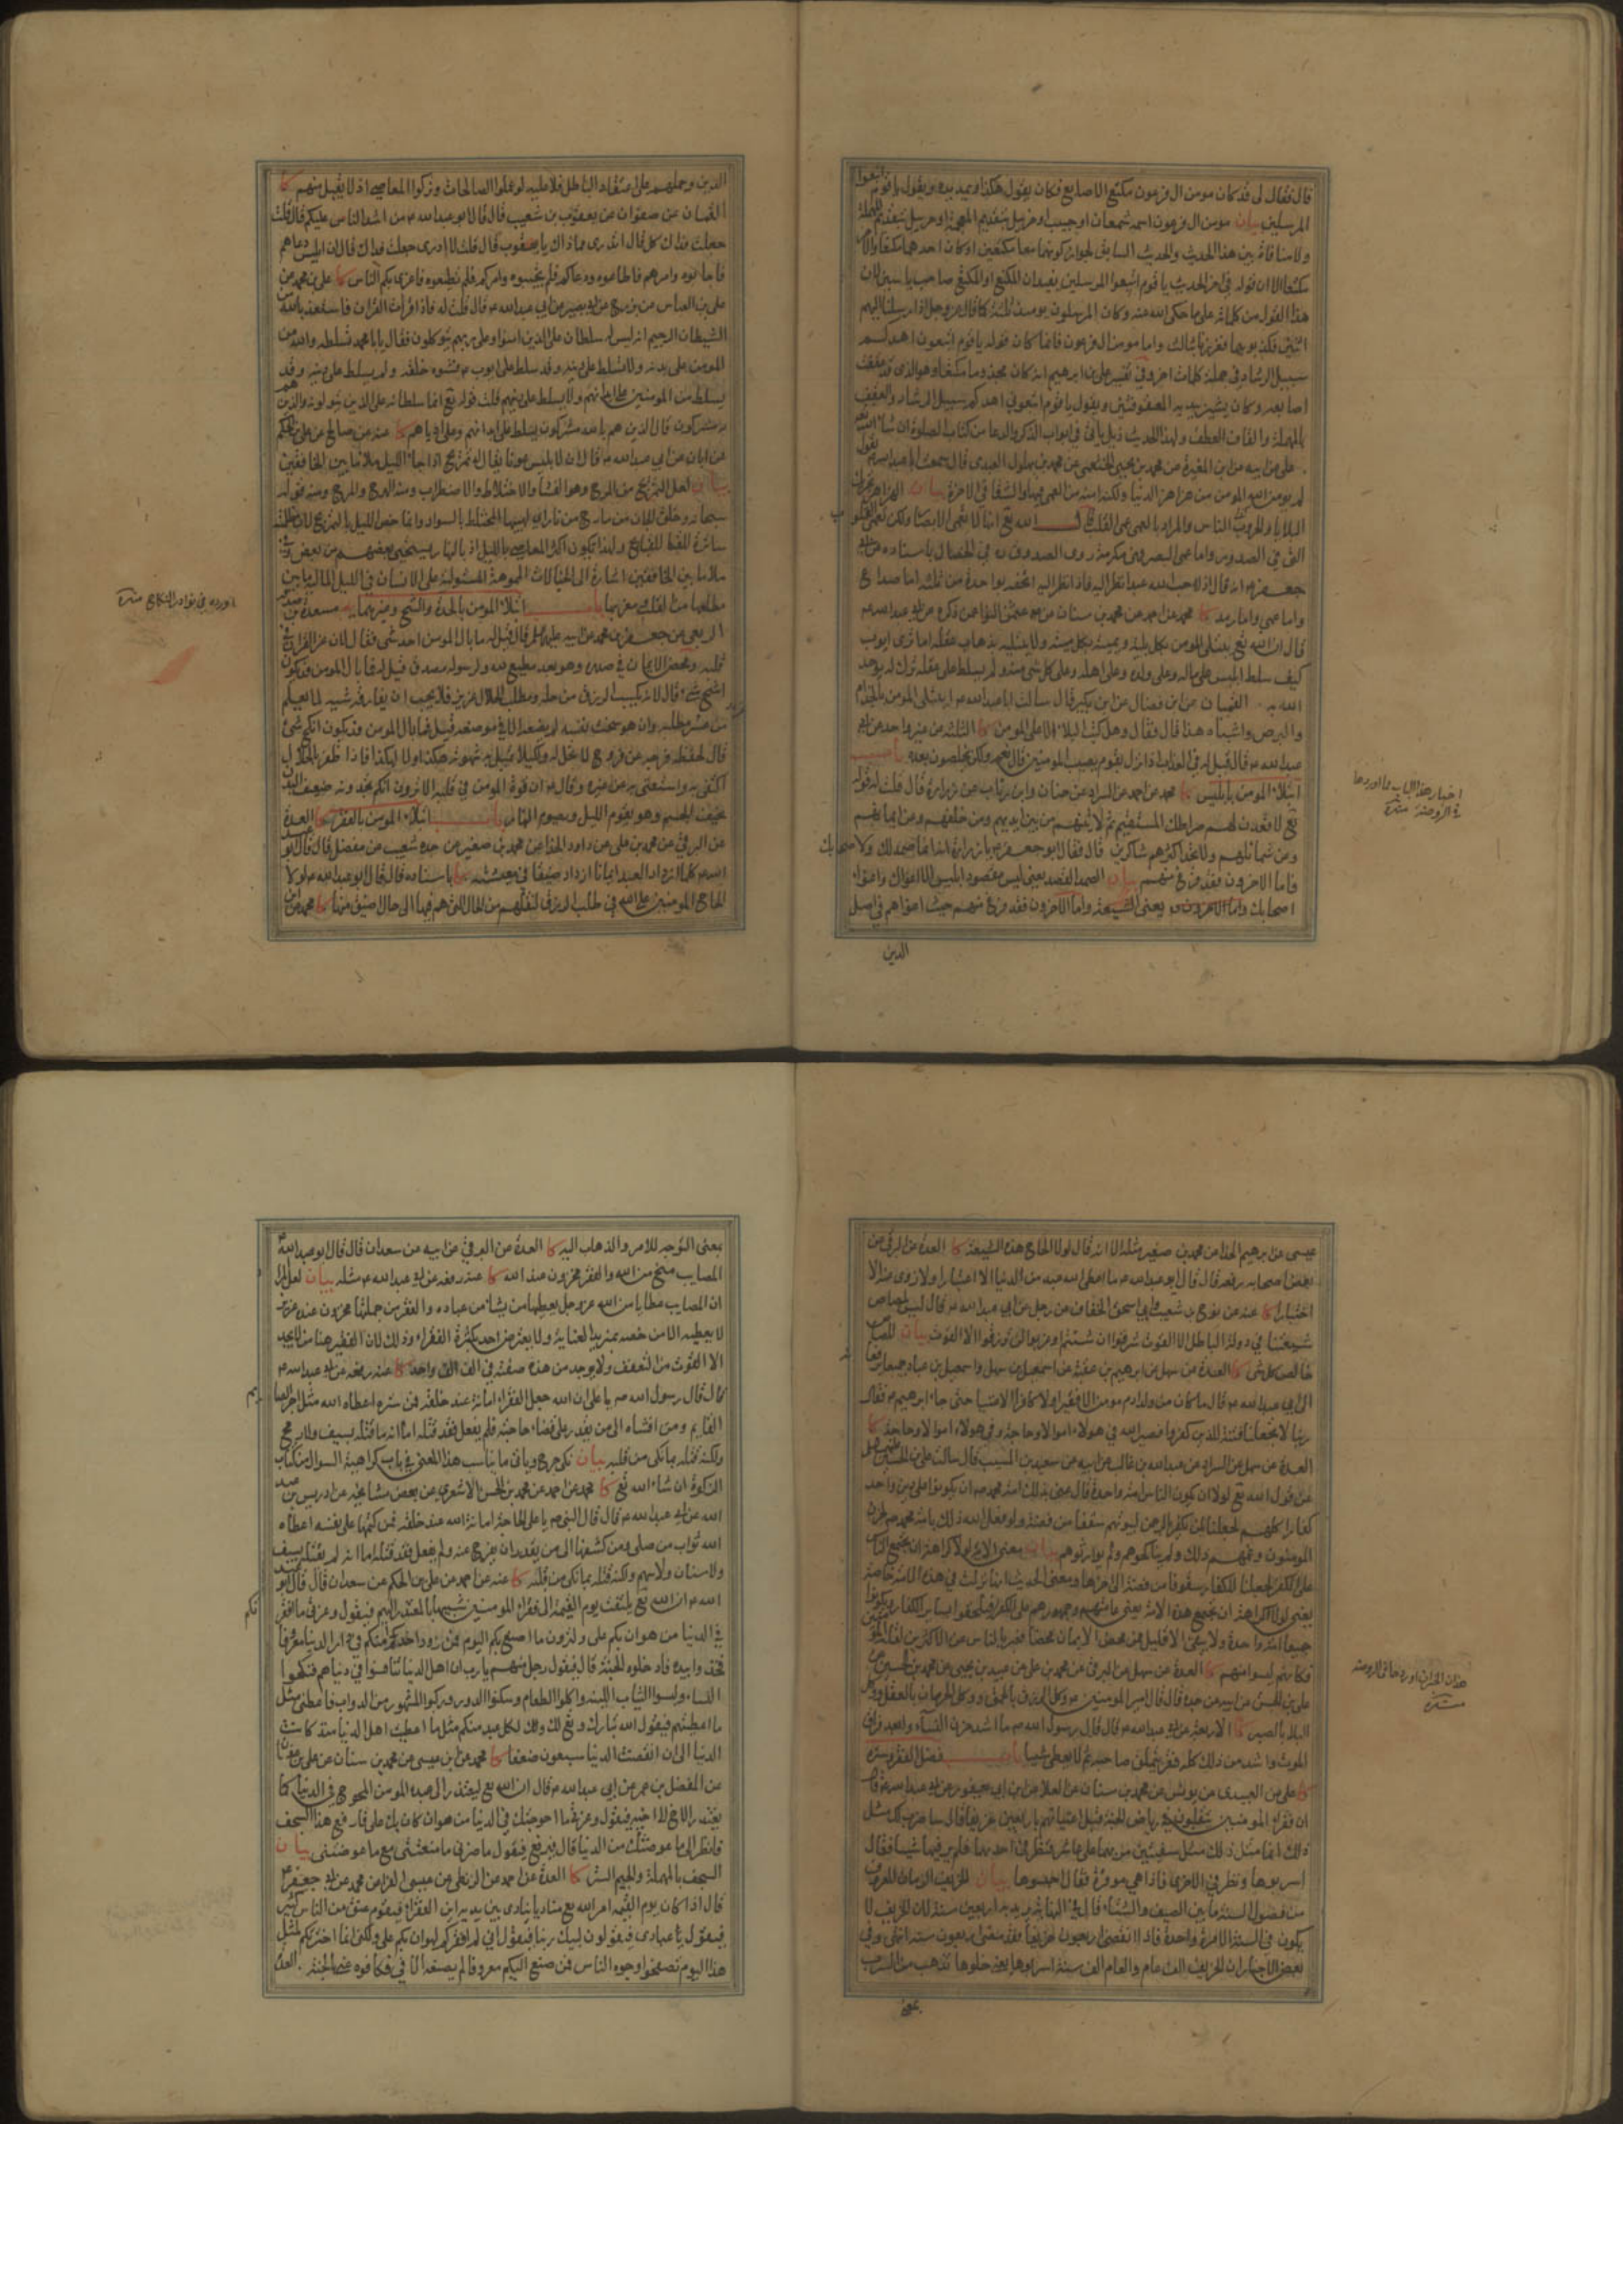 قال فقال لى قد كان مومن ال فرعون مكنع الاصابع فكان يقول هكذا ويمد يده ويقول يا قوم اتبعوا
المرسلين بيان مومن ال فرعون اسمه شمعان او حبيب او خربيل بتقديم المعجمة او حزبيل بتقديم المهملة
ولا منافاة بين هذا الحديث والحديث السابق لجواز كونهما معا مكنعين او كان احدهما مكنعا والاخر
مكتعا الا ان قوله فى اخر الحديث يا قوم اتبعوا المرسلين يفيد ان المكنع او المكتع صاحب ياسين لان
هذا القول من كلماته على ما حكى الله عنه وكان المرسلون يومئذ ثلثة كما قال عز وجل اذ ارسلنا اليهم
اثنين فكذبوهما فعززنا بثالث واما مومن ال فرعون فانما كان قوله يا قوم اتبعون اهدكم
سبيل الرشاد فى جملة كلمات اخر وفى تفسير على بن ابرهيم انه كان مجذوما مكنعا وهو الذى قد عقفت
اصابعه وكان يشير بيديه المعقوفتين ويقول يا قوم اتبعونى اهدكم سبيل الرشاد والعقف
بالمهملة والقاف العطف ولهذا الحديث ذيل ياتى فى ابواب الذكر والدعا من كتاب الصلوة ان شاء الله تعالى
على عن ابيه عن ابن المغيرة عن محمد بن يحيى الخثعمى عن محمد بن بهلول العبدى قال سمعت ابا عبد الله م يقول
لم يومن الله المومن من هزاهز الدنيا ولكنه امنه من العمى فيها والشقا فى الاخرة بيان الهزاهز تحريك
البلايا والحروب الناس والمراد بالعمى عمى القلب قال الله تع انها لا تعمى الابصار ولكن تعمى القلوب
التى فى الصدور واما عمى البصر فهى مكرمة روى الصدوق ره فى الخصال باسناده عن ابى
جعفر م انه قال اذا احب الله عبدا نظر اليه فاذا نظر اليه اتحفه بواحدة من ثلث اما صداع
واما حمى واما رمد كا محمد عن احمد عن محمد بن سنان عن عثمن النوا عمن ذكره عن ابى عبد الله م
قال ان الله تع يبتلى المومن بكل بلية ويميته بكل ميتة ولا يبتليه بذهاب عقله اما ترى ايوب
كيف سلط ابليس على ماله وعلى ولده وعلى اهله وعلى كل شى منه ولم يسلط على عقله ترك له يوحد
الله به القميان عن ابن فضال عن ابن بكير قال سالت ابا عبد الله م ايبتلى المومن بالجذام
والبرص واشباه هذا قال فقال وهل كتب البلاء الا على المومن كا الثلثة عن غير واحد عن ابى
عبد الله م قال قيل له فى العذاب اذا نزل بقوم يصيب المومنين قال نعم ولكن يخلصون بعده باب
ابتلاء المومن بابليس كا محمد عن احمد عن السراد عن حنان وابن رئاب عن زرارة قال قلت له قوله
تع لاقعدن لهم صراطك المستقيم ثم لاتينهم من بين ايديهم ومن خلفهم وعن ايمانهم
وعن شمائلهم ولا تجد اكثرهم شاكرين قال فقال ابو جعفر م يا زرارة انه انما صمد لك ولاصحابك
فاما الاخرون فقد فرغ منهم بيان الصمد القصد يعنى ليس مقصود ابليس الا اغواك واغواء
اصحابك واما الاخرون يعنى الشيعة واما الاخرون فقد فرغ منهم حيث اغواهم فى اصل
الدين
اخبار هذا الباب ما اوردها
فى الروضة منه ره
الدين وحملهم على اعتقاد الباطل فلا عليه لو عملوا الصالحات وتركوا المعاصى اذ لا يقبل منهم كا
القميان عن صفوان عن يعقوب بن شعيب قال قال ابو عبد الله م من اشد الناس عليكم قال قلت
جعلت فداك كل قال اتدرى مما ذاك يا يعقوب قال قلت لا ادرى جعلت فداك قال ان ابليس دعاهم
فاجابوه وامرهم فاطاعوه ودعاكم فلم تجيبوه وامركم فلم تطيعوه فاغرى بكم الناس كا على بن محمد عن
على بن العباس عن بزرج عن ابى بصير عن ابى عبد الله م قال قلت له فاذا قرات القران فاستعذ بالله من
الشيطان الرجيم انه ليس له سلطان على الذين امنوا وعلى ربهم يتوكلون فقال يا با محمد تسلطه والله من
المومن على بدنه ولا تسلط على دينه وقد سلط على ايوب م فشوه خلقه ولم يسلط على دينه وقد
يسلط من المومنين على ابدانهم ولا يسلط على دينهم قلت قوله تع انما سلطانه على الذين يتولونه والذين هم
به مشركون قال الذين هم بالله مشركون يسلط على ابدانهم وعلى اديانهم كا عنه عن صالح عن على بن الحكم
عن ابان عن ابى عبد الله م قال ان لابليس عونا يقال له تمريح اذا جاء الليل ملا ما بين الخافقين
بيان لعل التمريح من المرج وهو الفساد والاختلاط والاضطراب ومنه الهرج والمرج ومنه قوله
سبحانه وخلق الجان من مارج من نار اى لهيبها المختلط بالسواد وانما خص الليل بالتمريح لان ظلمته
ساترة للقبائح ولهذا يكون اكثر المعاصى بالليل اذ بالنهار يستحيى بعضهم من بعض وفى
ملا ما بين الخافقين اشارة الى الخيالات الموهمة المستولية على الانسان فى الليل المالية ما بين
مطلعها من افلاك مغربها باب ابتلاء المومن بالحدة والشح وغيرهما يه مسعدة بن صدقة
الربعى عن جعفر بن محمد عن ابيه عليهما السلم قال قيل له ما بال المومن احد شى فقال لان عز القران فى
قلبه ومحض الايمان فى صدره وهو يعبد مطيع لله ولرسوله مصدق قيل له فما بال المومن قد يكون
اشح شى قال لانه يكسب الرزق من حله ومطلب الحلال عزيز فلا يحب ان يفارقه شيئه لما يعلم
من عسر مطلبه وان هو سخت نفسه لم يضعه الا فى موضعه قيل فما بال المومن قد يكون انكح شى
قال لحفظه فرجه عن فروج لا تحل له ولكيلا تميل به شهوته هكذا ولا هكذا فاذا ظفر بالحلال
اكتفى به واستغنى به عن غيره وقال م ان قوة المومن فى قلبه الا ترون انكم تجدونه ضعيف البدن
نحيف الجسم وهو يقوم الليل ويصوم النهار باب ابتلاء المومن بالفقر كا العدة
عن البرقى عن محمد بن على عن داود الحذا عن محمد بن صغير عن جده شعيب عن مفضل قال قال ابو عبد
الله م كلما ازداد العبد ايمانا ازداد ضيقا فى معيشته كا باسناده قال قال ابو عبد الله م لولا
الحاح المومنين على الله فى طلب الرزق لنقلهم من الحال التى هم فيها الى حال اضيق منها كا محمد عن
اورده فى نوادر النكاح منه ره
عيسى عن ابرهيم الحذا عن محمد بن صغير مثله الا انه قال لولا الحاح هذه الشيعة كا العدة عن البرقى عن
بعض اصحابه رفعه قال قال ابو عبد الله م ما اعطى الله عبد من الدنيا الا اعتبارا ولا زوى عنه الا
اختبارا كا عنه عن نوح بن شعيب وابى اسحق الخفاف عن رجل عن ابى عبد الله م قال ليس لمصاص
شيعتنا فى دولة الباطل الا القوت شرقوا ان شئتم او غربوا لن ترزقوا الا القوت بيان المصاص
خالص كل شى كا العدة عن سهل عن ابرهيم بن عقبة عن اسمعيل بن سهل واسمعيل بن عباد جميعا رفعا
الى ابى عبد الله م قال ما كان من ولد ادم مومن الا فقيرا ولا كافر الا غنيا حتى جاء ابرهيم م فقال
ربنا لا تجعلنا فتنة للذين كفروا فصير الله فى هولاء اموالا وحاجة وفى هولاء اموالا وحاجة كا
العدة عن سهل عن السراد عن عبد الله بن غالب عن ابيه عن سعيد بن المسيب قال سالت على بن الحسين م
عن قول الله تع لولا ان يكون الناس امة واحدة قال عنى بذلك امة محمد ص ان يكونوا على دين واحد
كفارا كلهم لجعلنا لمن يكفر بالرحمن لبيوتهم سقفا من فضة ولو فعل الله ذلك بامة محمد ص لحزن
المومنون وغمهم ذلك ولم يناكحوهم ولم يوارثوهم بيان معنى الاية لولا كراهة ان يجتمع الناس
على الكفر لجعلنا للكفار سقوفا من فضة الى اخرها ومعنى الحديث انها نزلت فى هذه الامة خاصة
يعنى لولا كراهة ان يجتمع هذه الامة يعنى عامتهم وجمهورهم على الكفر فيلحقوا بسائر الكفار ويكونوا
جميعا امة واحدة ولا يبقى الا قليل ممن محض الايمان محضا فعبر بالناس عن الاكثرين لقلة المومنين
فكانهم ليسوا منهم كا العدة عن سهل عن البرقى عن محمد بن على عن عبيد بن يحيى عن محمد بن الحسين عن
على بن الحسين عن ابيه عن جده قال قال امير المومنين م وكل الرزق بالحمق ووكل الحرمان بالعقل ووكل
البلا بالصبر كا الاربعة عن ابى عبد الله م قال قال رسول الله ص ما اشد حزن النساء وابعد فراق
الموت واشد من ذلك كله فقر يتملق صاحبه ثم لا يعطى شيئا باب فضل الفقر وستره
كا على عن العبيدى عن يونس عن محمد بن سنان عن العلا عن ابن ابى يعفور عن ابى عبد الله م قال
ان فقراء المومنين يتقلبون فى رياض الجنة قبل اغنيائهم باربعين خريفا ثم قال ساضرب لك مثل
ذلك انما مثل ذلك مثل سفينتين مر بهما على عاشر فنظر فى احدهما فلم ير فيها شيئا فقال
اسربوها ونظر فى الاخرى فاذا هى موقرة فقال احبسوها بيان الخريف الزمان المعروف
من فصول السنة ما بين الصيف والشتاء قال فى النهاية يريد به اربعين سنة لان الخريف لا
يكون فى السنة الا مرة واحدة فاذا انقضى اربعون خريفا فقد مضى اربعون سنة انتهى وفى
بعض الاخبار ان الخريف الف عام والعام الف سنة اسربوها يعنى خلوها تذهب من السرب
بمعنى
يعنى التوجه للامر والذهاب اليه كا العدة عن البرقى عن ابيه عن سعدان قال قال ابو عبد الله م
المصايب منح من الله والفقر مخزون عند الله كا عنه رفعه عن ابى عبد الله م مثله بيان لعل المراد
ان المصايب عطايا من الله عز وجل يعطيها من يشاء من عباده والفقر من جملتها مخزون عنده عزيز
لا يعطيه الا من خصه بمزيد العناية ولا يعترض احد بكثرة الفقراء وذلك لان الفقير هنا من لا يجد
الا القوت من التعفف ولا يوجد من هذه صفته فى الف الف واحد كا عنه رفعه عن ابى عبد الله م
قال قال رسول الله ص يا على ان الله جعل الفقر امانة عند خلقه فمن ستره اعطاه الله مثل اجر الصايم
القايم ومن افشاه الى من يقدر على قضاء حاجته فلم يفعل فقد قتله اما انه ما قتله بسيف ولا رمح
ولكنه قتله بما نكى من قلبه بيان نكى جرح وياتى ما يناسب هذا المعنى فى باب كراهية السوال من كتاب
الزكوة ان شاء الله تع كا محمد عن احمد عن محمد بن الحسن الاشعرى عن بعض مشايخه عن ادريس بن عبد
الله عن ابى عبد الله م قال قال النبى ص يا على الحاجة امانة الله عند خلقه فمن كتمها على نفسه اعطاه
الله ثواب من صلى ومن كشفها الى من يقدر ان يفرج عنه ولم يفعل فقد قتله اما انه لم يقتله بسيف
ولا سنان ولا سهم ولكنه قتله بما نكى من قلبه كا عنه عن احمد عن على بن الحكم عن سعدان قال قال ابو عبد
الله م ان الله تع يلتفت يوم القيمة الى فقراء المومنين شبيها بالمعتذر اليهم فيقول وعزتى ما افقرتكم
فى الدنيا من هوان بكم على ولترون ما اصنع بكم اليوم فمن زود احدا منكم فى دار الدنيا معروفا
فخذوا بيده فادخلوه الجنة قال فيقول رجل منهم يا رب ان اهل الدنيا تنافسوا فى دنياهم فنكحوا
النساء ولبسوا الثياب اللينة واكلوا الطعام وسكنوا الدور وركبوا المشهور من الدواب فاعطنى مثل
ما اعطيتهم فيقول الله تبارك وتع لك ولكل عبد منكم مثل ما اعطيت اهل الدنيا منذ كانت
الدنيا الى ان انقضت الدنيا سبعون ضعفا كا محمد عن ابن عيسى عن محمد بن سنان عن على بن عفان
عن المفضل بن عمر عن ابى عبد الله م قال ان الله تع ليعتذر الى عبده المومن المحوج فى الدنيا كما
يعتذر الاخ الى اخيه فيقول وعزتى ما احوجتك فى الدنيا من هوان كان بك على فارفع هذا السجف
فانظر الى ما عوضتك من الدنيا قال فيرفع فيقول ما ضرنى ما منعتنى مع ما عوضتنى بيان
السجف بالمهملة والجيم الستر كا العدة عن احمد عن البزنطى عن عيسى الفرا عن محمد عن ابى جعفر م
قال اذا كان يوم القيمة امر الله تع مناديا ينادى بين يديه اين الفقراء فيقوم عنق من الناس كثير
فيقول يا عبادى فيقولون لبيك ربنا فيقول انى لم افقركم لهوان بكم على ولكنى انما اخترتكم لمثل
هذا اليوم تصفحوا وجوه الناس فمن صنع اليكم معروفا لم يصنعه الا فى فكافوه عنى بالجنة العدة